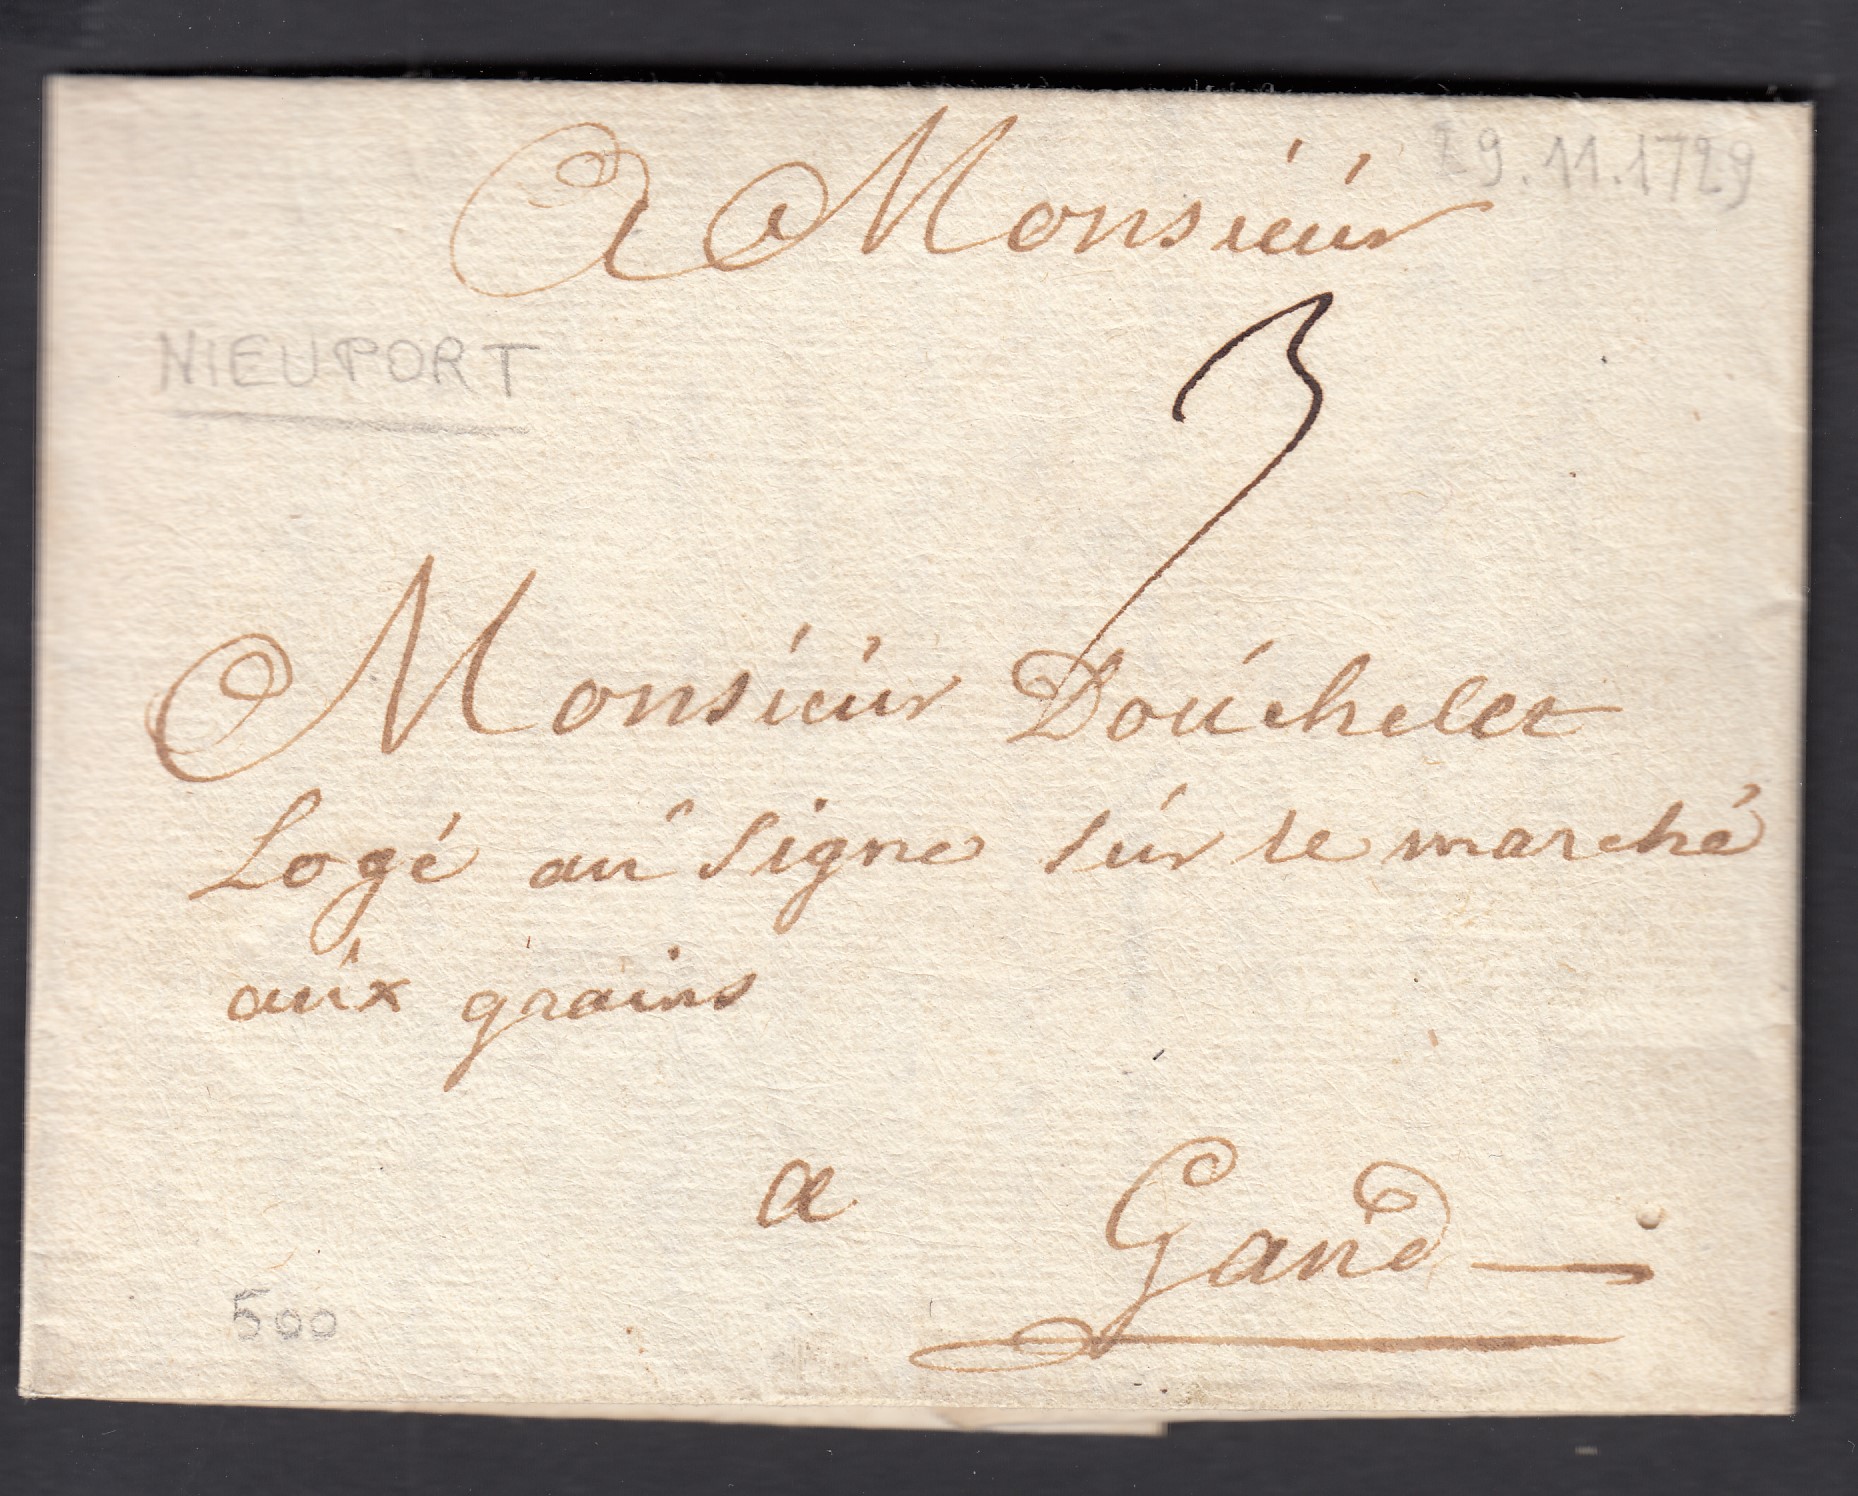 A Monsieur
29.11.1729
NIEUPORT
3
Monsieur Douchelet
Logé au Signe sur le marché
aux grains
a Gand
500